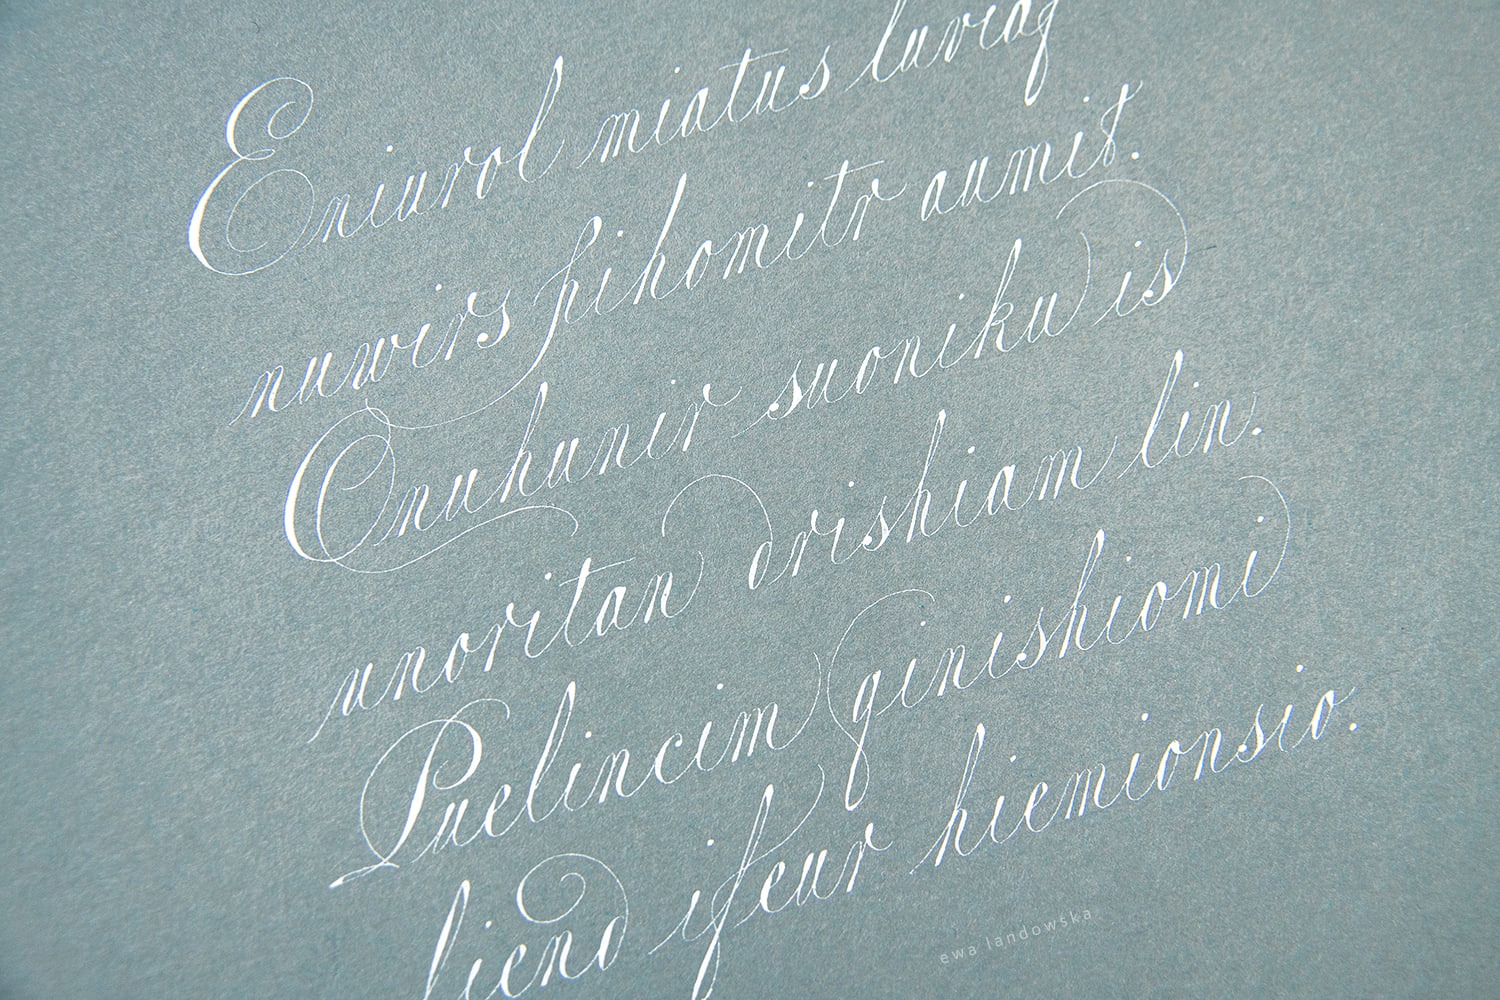 Eniurol miatus luviag
nuwirs pihomitr aumit.
Onuhunir suoniku is
unoritan drishiam lin.
Puelincim ginishiomi
liend ifeur hiemionsio.
ewa landowska